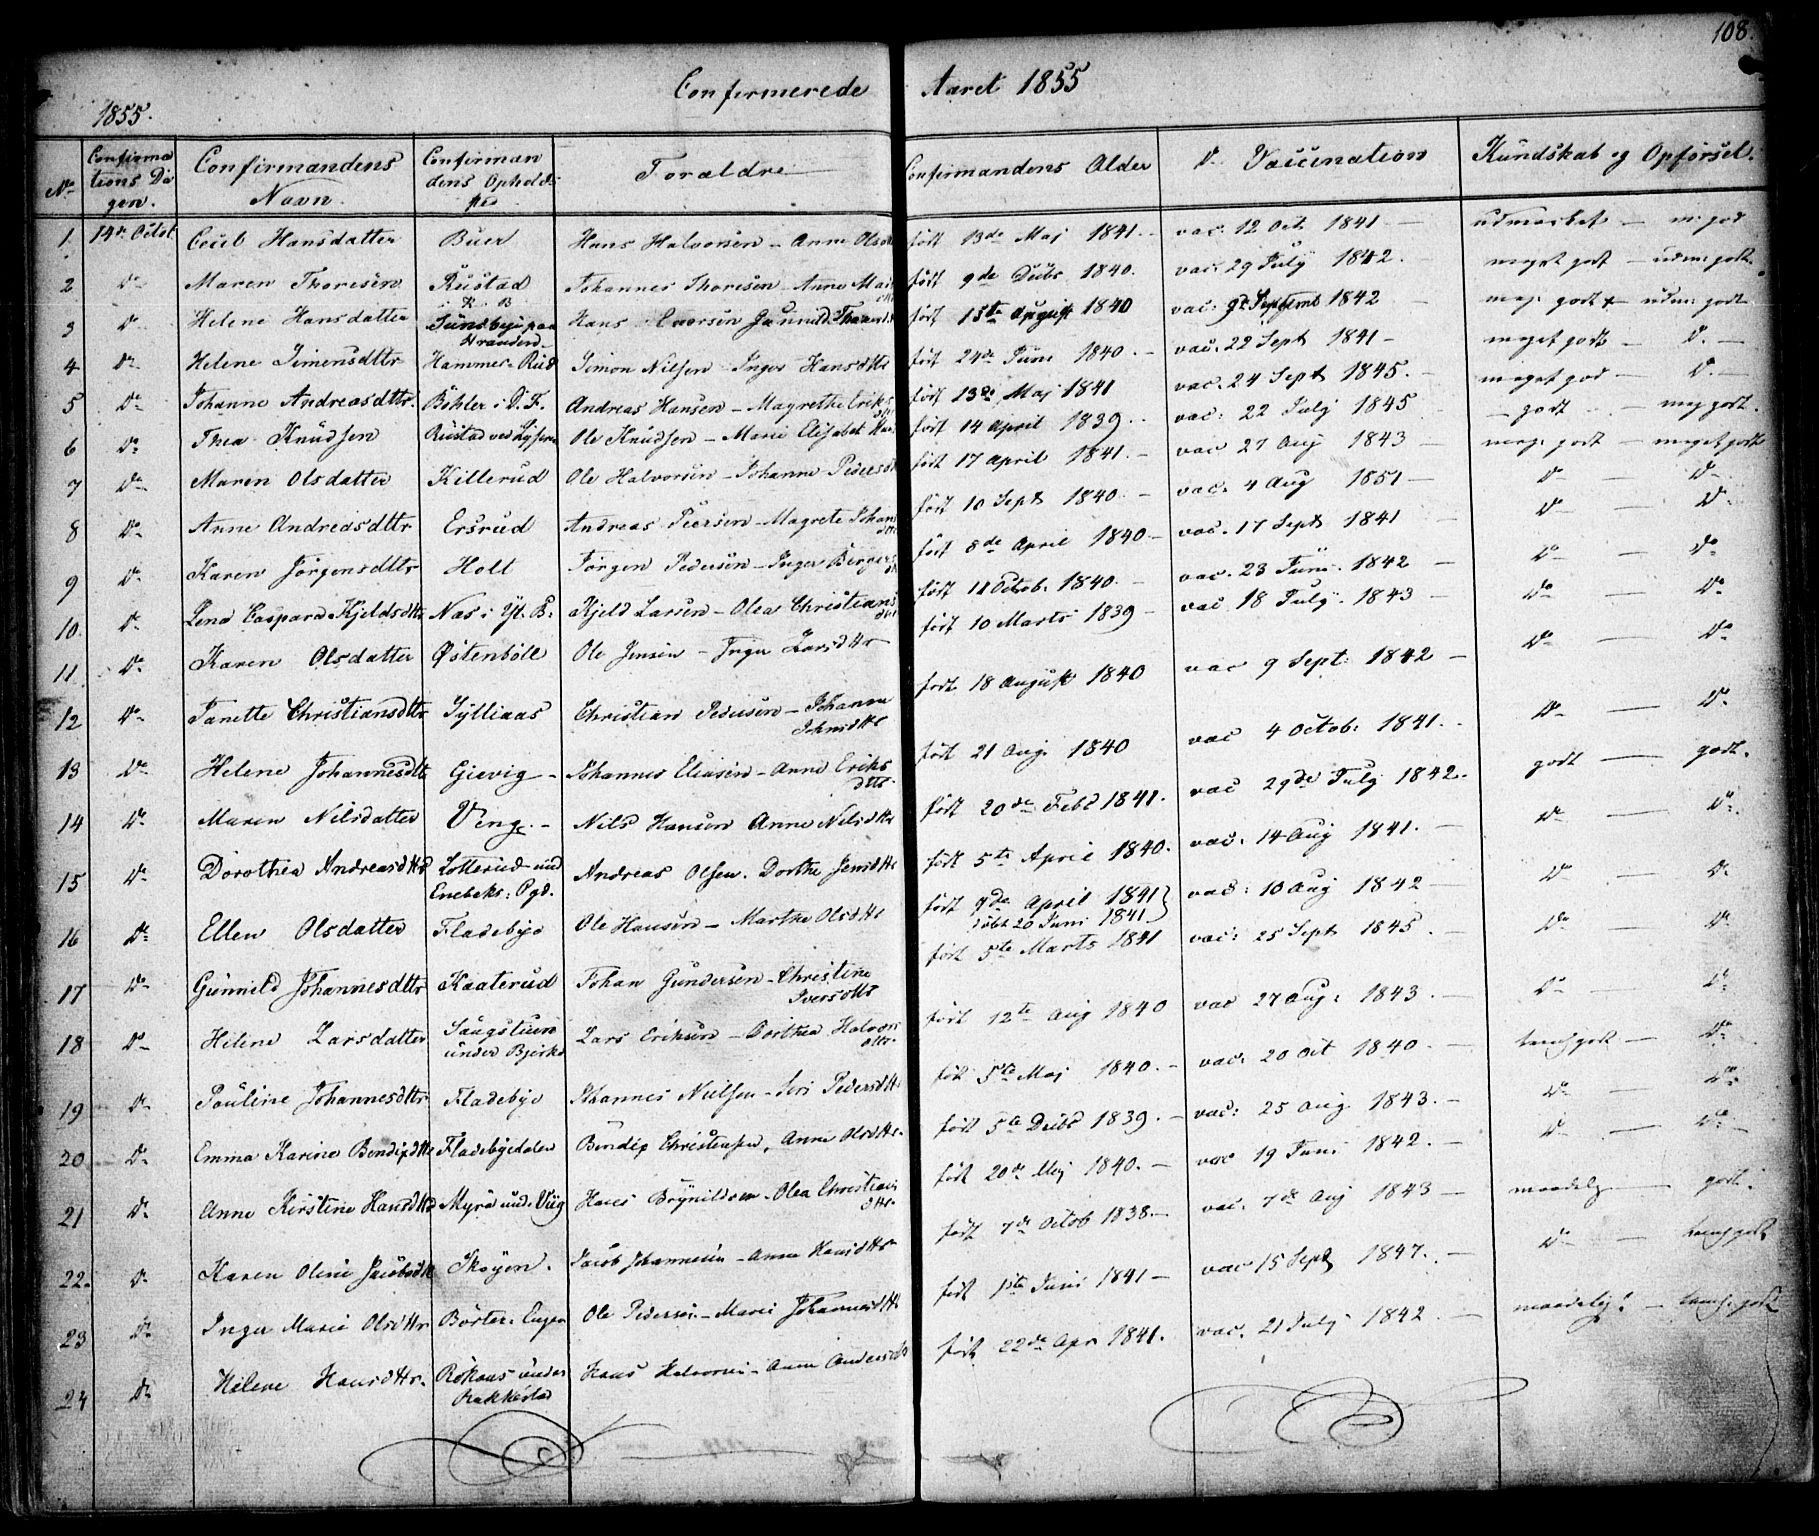 108.
Confirmerede Aaret 1855
1855.
No Confirmations Dagen. Confirmandens Navn. Confirmandens Opholdssted Forældre Confirmandens Alder Do Vaccination Kundskab og Opførsel.
1. 14de Octbr Hansdatter Buer Hans Halvorsen - Anne født 13de Maj 1841. - vac. 12 Oct 1841 - udmærket - m. god
2 Do Maren Thoresen Rustad Johannes Thoresen - Anne født 9de Decbr 1840. vac: 29 July 1842. meget godt - udm. godt
3 Do Helene Hansdatter Hans født 15te August 1840 vac: 9de Septemb 1842 meg. godt - udm. godt
4 Do Helene Simensdttr Hammer-Rud Simon Nilsen Inger Hansdttr født 24de Juni 1840. - vac. 22 Sept 1841 - meget godt - Do. -
5 Do Johanne Andreasdttr. Böhler i D. F. Andreas Hansen - Magrethe Eriksdttr født 13de Maj 1841 vac. 24 Sept 1845. - meget god - Do. -
6 Do Thea Knudsen Rustad ved Ole Knudsen - Marie Elisabet født 14 April 1839. vac: 22 July 1845 - godt - meg godt.
7 Do Maren Olsdatter Killerud Ole Halvorsen - Johanne født 17 April 1841. - vac 27 Aug 1843 - meg. godt - meget godt
8 Do Anne Andreasdttr Ersrud Andreas - Magrete født 10 Sept 1840. - vac. 4 Aug 1851 - Do - Do
9 Do Karen Jörgensdttr Holt Jörgen Pedersen - Inger født 8de April 1840. - vac. 17 Sept 1841 - Do - Do
10. Do Lena Caspara Kjeldsdttr Næs i Yt. E. Kjeld Larsen - Olea Christiansdttr født 11 Octob. 1840. - vac. 23 Juni. 1842 - Do - Do
11 Do Karen Olsdatter Østenböll Ole Jensen - Inger Larsdttr født 10 Marts 1839 - vac 18 July. 1843 - Do - Do
12 Do Janette Christiansdttr Sylliaas Christian Pedersen - Johanne født 18 August 1840 vac 9 Sept: 1842 - Do - Do
13 Do Helene Johannesdtt Gievig - Johannes Eliasen - Anne Eriksdttr født 21 Aug. 1840 vac 4 Octob: 1841. - Do - Do.
14 Do Maren Nilsdatter Veng. - Nils Hansen Anne Nilsdttr født 20de Febr 1841. vac 29de July 1842. godt - godt.
15 Do Dorothea Andreasdttr und Enebaks: Pgd. Andreas Olsen. Dorthe Jensdttr født 5te April 1840. vac: 14 Aug 1841. - Do - Do
16 Do Ellen Olsdatter Fladebye Ole Hansen - Marthe Olsdttr født 9de April 1841 døbt 20 Juni 1841. vac: 10 Aug 1842 - Do - Do
17 Do Gunnild Johannesdttr Kaaterud Johan Gundersen - Christine Iversdttr født 5te Marts 1841 vac: 25 Sept 1845. - Do - Do
18 Do Helene Larsdatter under Lars Eriksen - Dorthea født 12te Aug 1840 vac 27 Aug: 1843. - Do - Do
19 Do Pauline Johannesdttr Fladebye Johannes Nielsen - Pedersdttr født 5te Maj 1840. - vac: 20 Oct 1840. - temf godt - Do
20 Do Emma Karine Fladebyedalen Christensen, Anne Olsdttr. født 5te Decbr 1839. - vac: 25 Aug. 1843. - Do - Do
21 Do Anne Kirstine Hansdttr Myra und. Hans - Olea Christiansdttr. født 20de Maj 1840. - vac 19 Juni 1842. - Do - Do -
22. Do Karen Oline Jacobsdtt Skøyen. Jacob Johannesen - Anne Hansdttr født 7de Octob 1838. - vac. 7de Aug 1843 - maadelig - godt.
23 Do Inger Marie Olsdttr Börter. Ole Pedersen - Marie Johannesdttr født 1ste Juni 1841 - vac 15 Sept 1847. - Do - temf godt
24 Do Helene Hansdttr. under Rakkestad Hans - Anne født 22de Apr 1841. vac. 21 July 1842 - maadelig - temf. godt